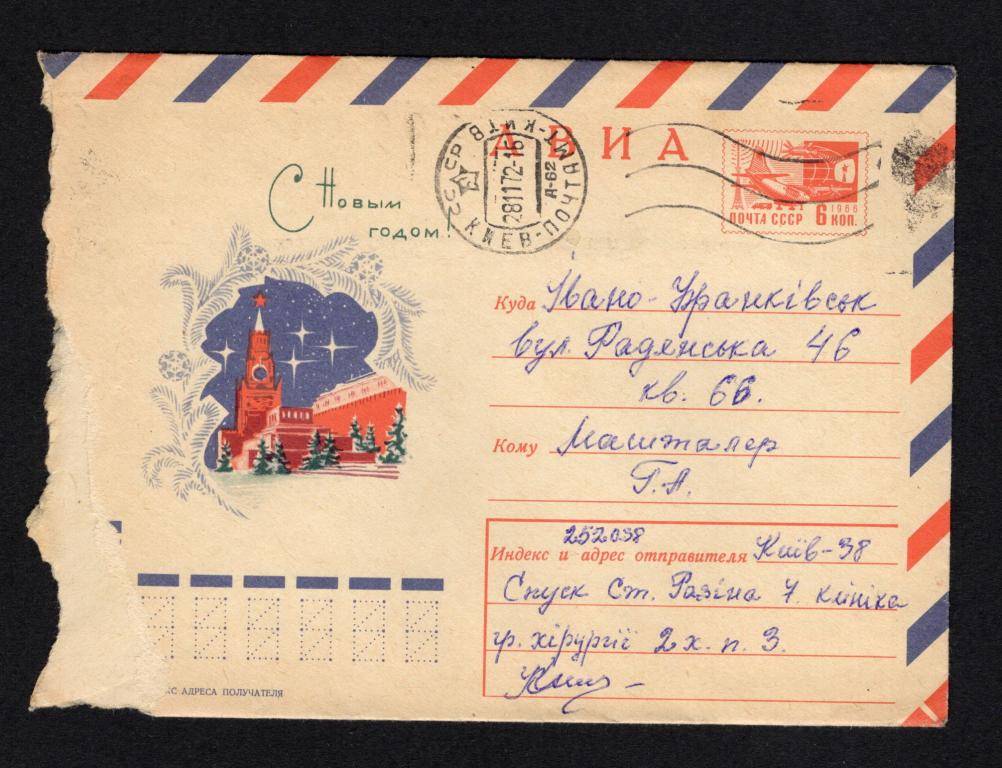 АВИА
С Новым
годом!
КИЕВ-ПОЧТАМТ-КИТВ
281172-16
Д-62
ПОЧТА СССР 6 КОП.
1966
Куда Івано-Франківськ
вул. Радянська 46
кв. 66.
Кому Машталер
Г. А.
252038
Индекс и адрес отправителя Київ-38
Спуск Ст. Разіна 7. клініка
гр. хірургії 2 х. п. 3.
КС АДРЕСА ПОЛУЧАТЕЛЯ